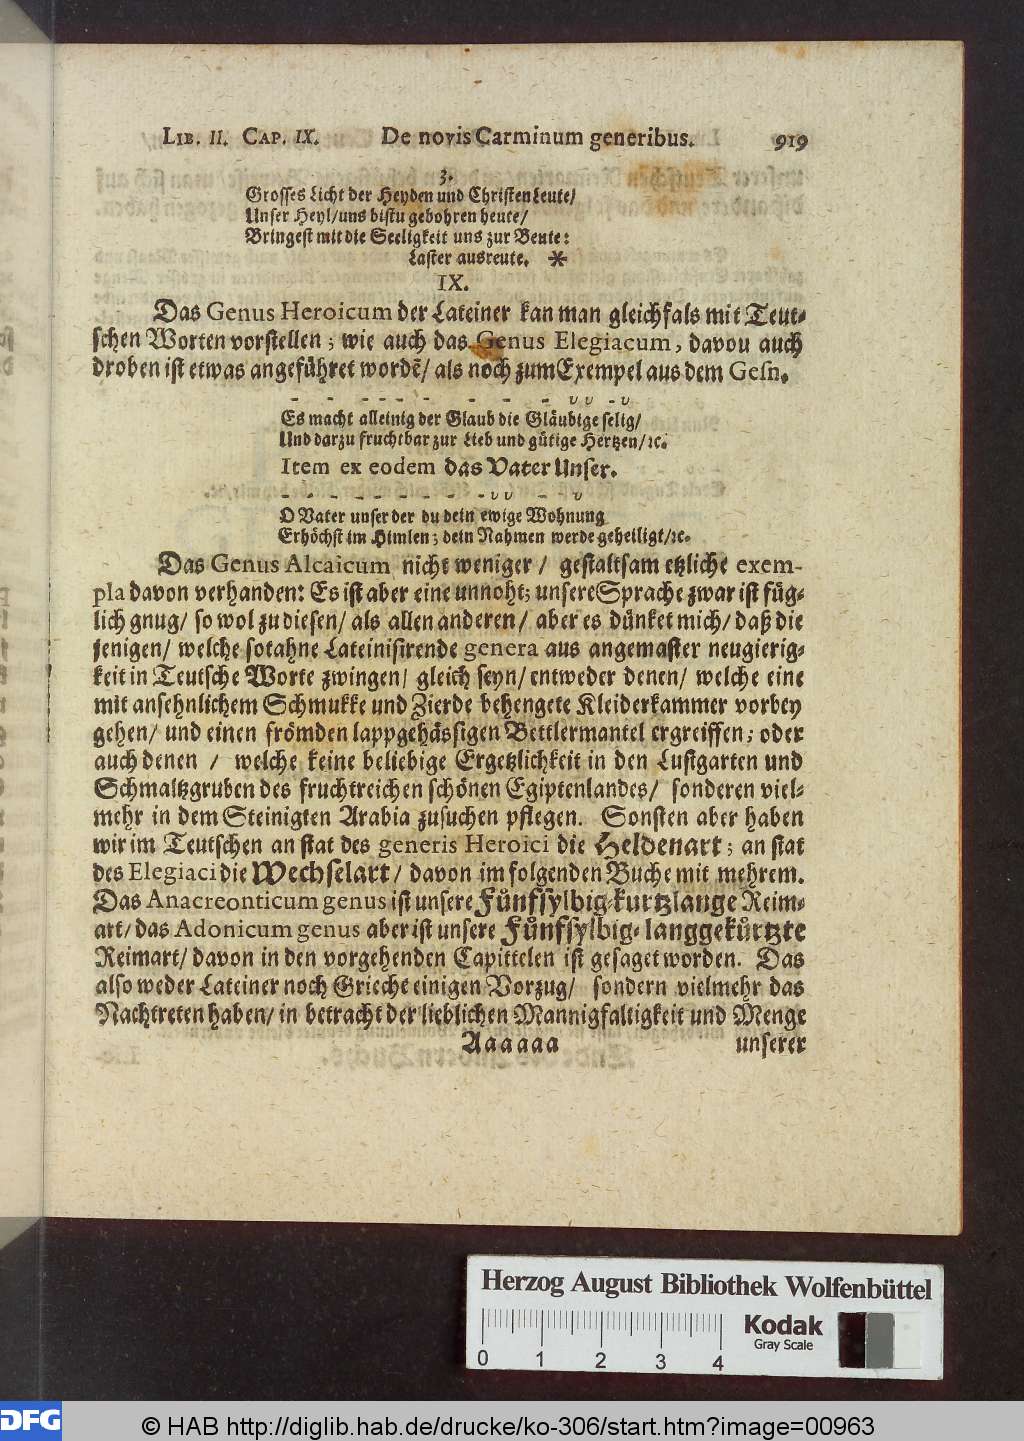 LIB. II. CAP. IX. De novis Carminum generibus. 919
3.
Grosses Licht der Heyden und Christen Leute/
Unser Heyl/uns bistu gebohren heute/
Bringest mit die Seeligkeit uns zur Beute:
Laster ausreute. *
IX.
Das Genus Heroicum der Lateiner kan man gleichfals mit Teut-
schen Worten vorstellen; wie auch das Genus Elegiacum, davou auch
droben ist etwas angeführet wordẽ/ als noch zum Exempel aus dem Gesn.
- - - - - - - - - υ υ - υ
Es macht alleinig der Glaub die Gläubige selig/
Und darzu fruchtbar zur Lieb und gütige Hertzen/ꝛc.
Item ex eodem das Vater Unser.
- - - - - - - - - υ υ - - υ
O Vater unser der du dein ewige Wohnung
Erhöchst im Himlen; dein Nahmen werde geheiligt/ꝛc.
Das Genus Alcaicum nicht weniger / gestaltsam etzliche exem-
pla davon verhanden: Es ist aber eine unnoht; unsere Sprache zwar ist füg-
lich gnug/ so wol zu diesen/ als allen anderen/ aber es dünket mich/ daß die
jenigen/ welche sotahne Lateinisirende genera aus angemaster neugierig-
keit in Teutsche Worte zwingen/ gleich seyn/ entweder denen/ welche eine
mit ansehnlichem Schmukke und Zierde behengete Kleiderkammer vorbey
gehen/ und einen frömden lappgehässigen Bettlermantel ergreiffen; oder
auch denen / welche keine beliebige Ergetzlichkeit in den Lustgarten und
Schmaltzgruben des fruchtreichen schönen Egiptenlandes/ sonderen viel-
mehr in dem Steinigten Arabia zusuchen pflegen. Sonsten aber haben
wir im Teutschen an stat des generis Heroici die Heldenart; an stat
des Elegiaci die Wechselart/ davon im folgenden Buche mit mehrem.
Das Anacreonticum genus ist unsere Fünfsylbig-kurtzlange Reim-
art/ das Adonicum genus aber ist unsere Fünfsylbig-langgekürtzte
Reimart/ davon in den vorgehenden Capittelen ist gesaget worden. Das
also weder Lateiner noch Grieche einigen Vorzug/ sondern vielmehr das
Nachtreten haben/ in betracht der lieblichen Mannigfaltigkeit und Menge
Aaaaaa unserer
Herzog August Bibliothek Wolfenbüttel
0 1 2 3 4
Kodak
Gray Scale
DFG © HAB http://diglib.hab.de/drucke/ko-306/start.htm?image=00963